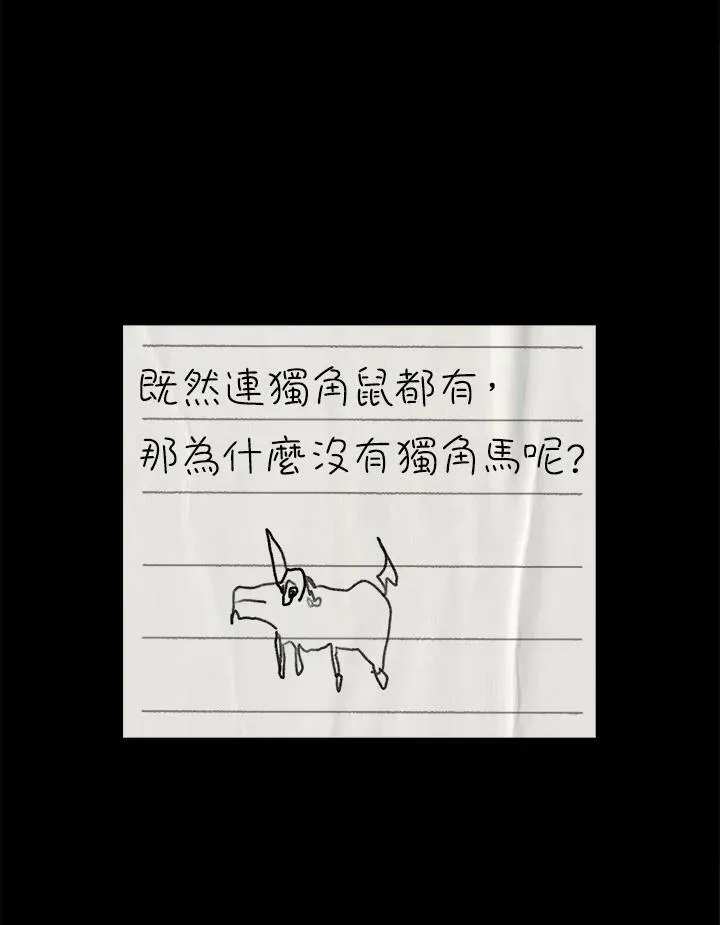 既然連獨角鼠都有，
那為什麼沒有獨角馬呢?